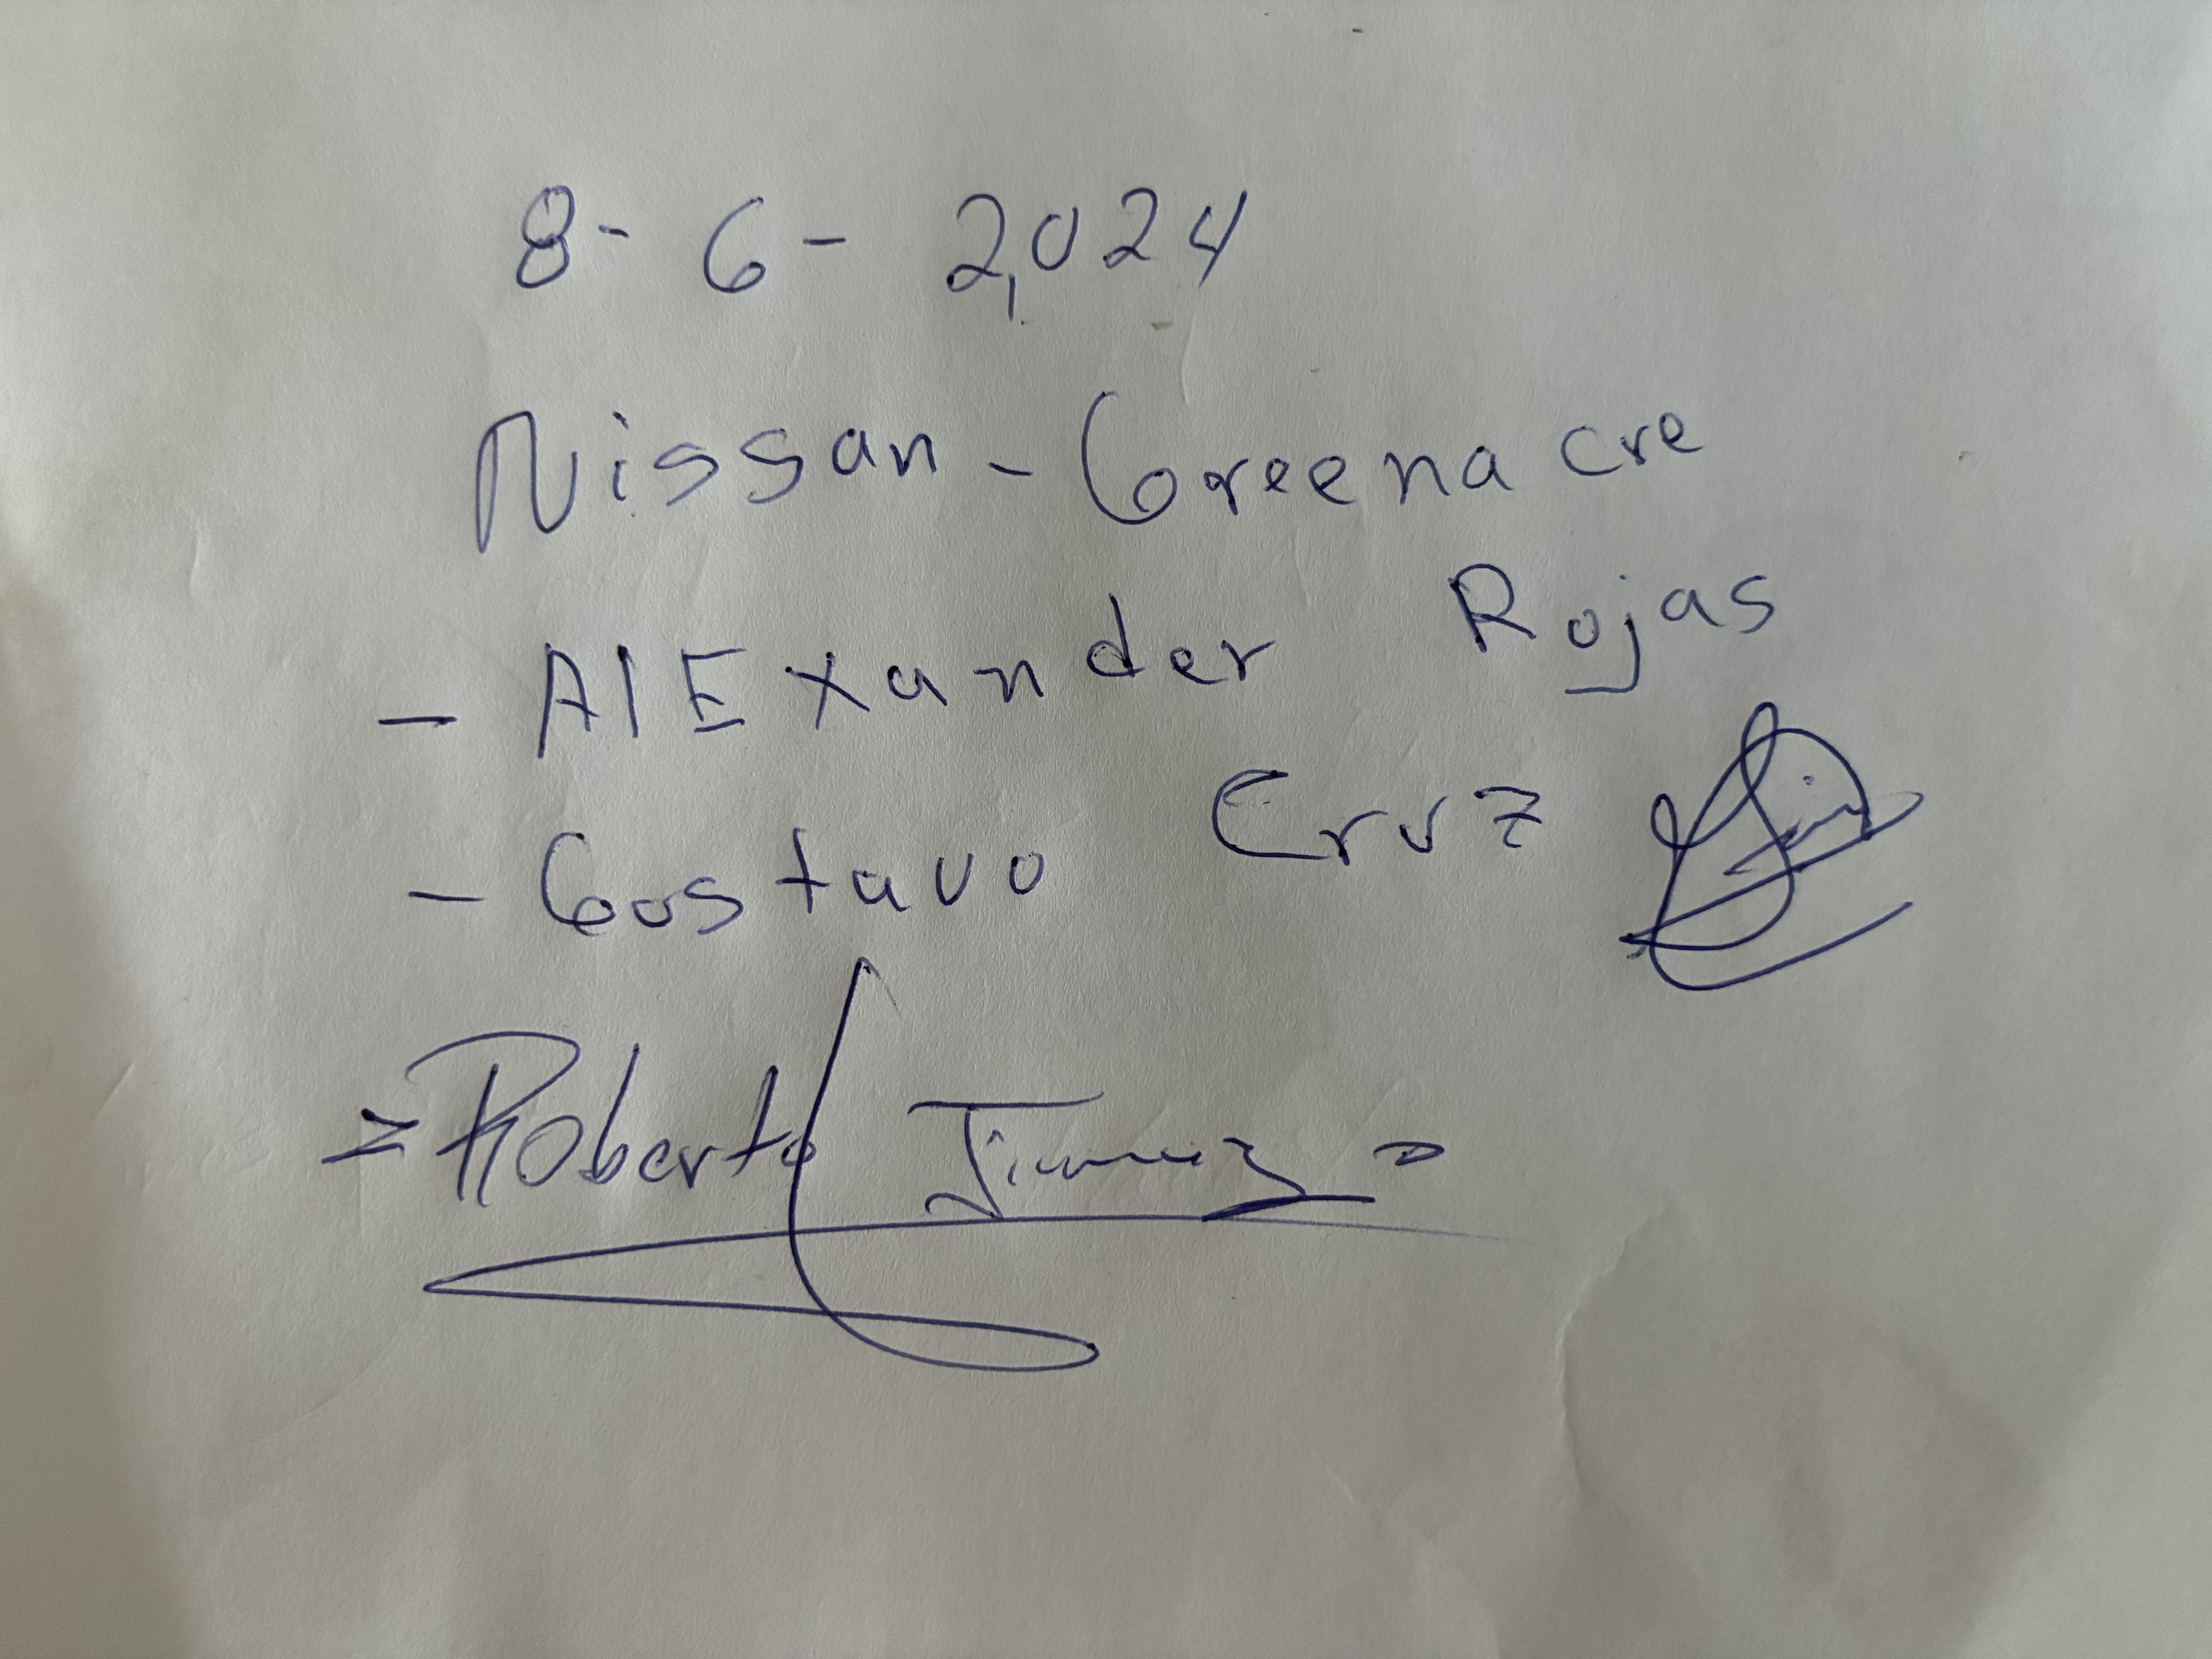 8-6-2,024
Nissan-Greenacre
- AlExander Rojas
- Gustavo Cruz
= Roberto Jimenez